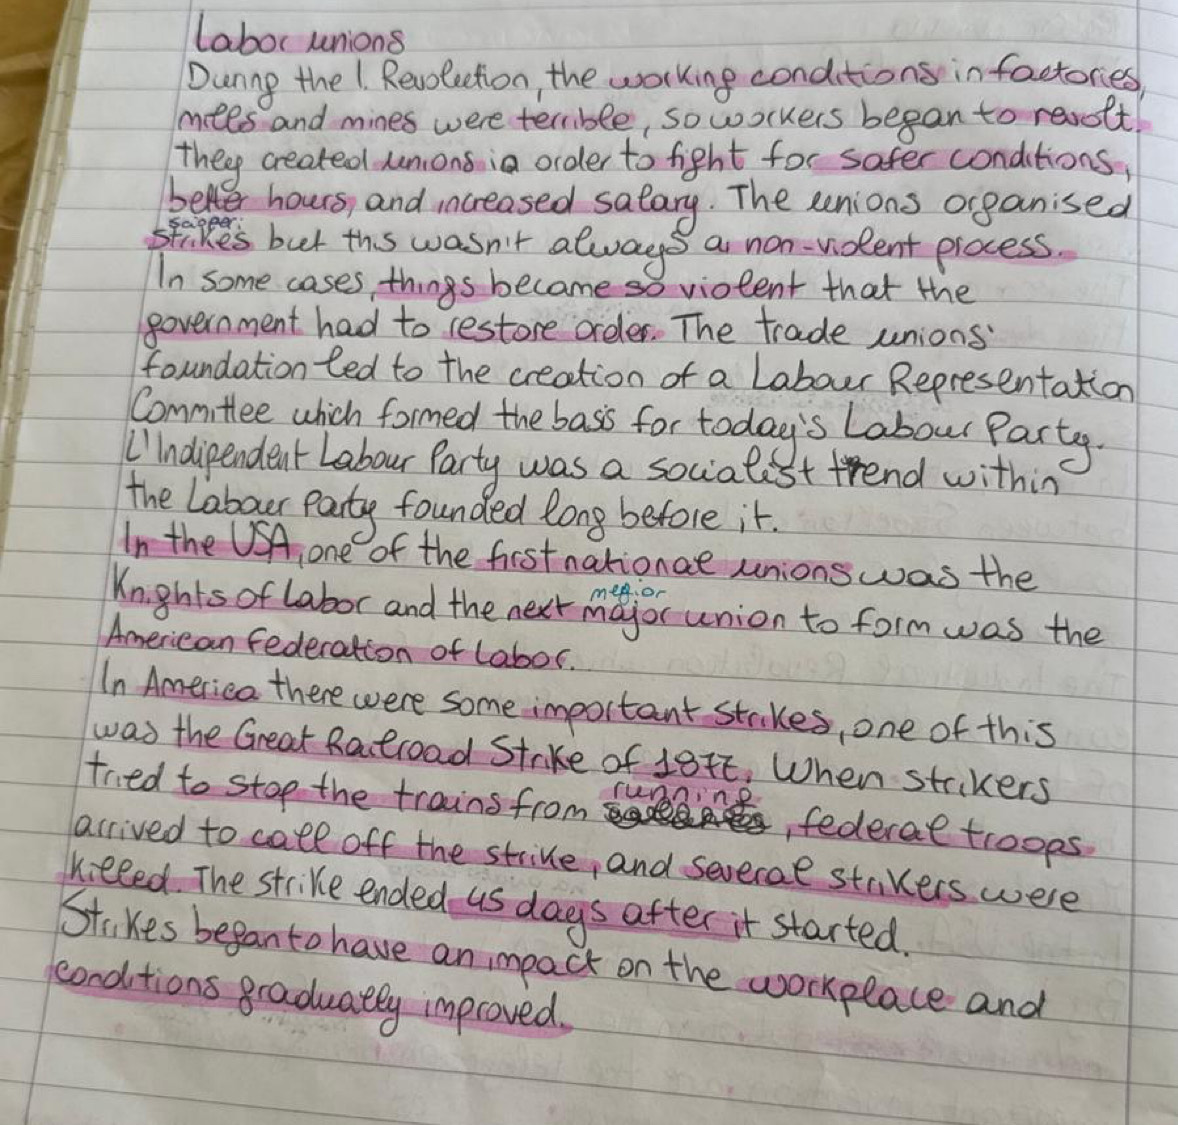 Labor unions
During the I. Revolution, the working conditions in factories,
mills and mines were terrible, so workers began to revolt.
They created unions in order to fight for safer conditions,
better hours, and increased salary. The unions organised
scioperi
strikes but this wasn't always a non-violent process.
In some cases, things became so violent that the
government had to restore order. The trade unions'
foundation led to the creation of a Labour Representation
Committee which formed the basis for today's Labour Party.
L'Indipendent Labour Party was a socialist trend within
the Labour Party founded long before it.
In the USA, one of the first national unions was the
megior
Knights of Labor and the next major union to form was the
American Federation of Labor.
In America there were some important strikes, one of this
was the Great Railroad Strike of 1877. When strikers
running
tried to stop the trains from , federal troops
arrived to call off the strike, and several strikers were
killed. The strike ended 45 days after it started.
Strikes began to have an impact on the workplace and
conditions gradually improved.